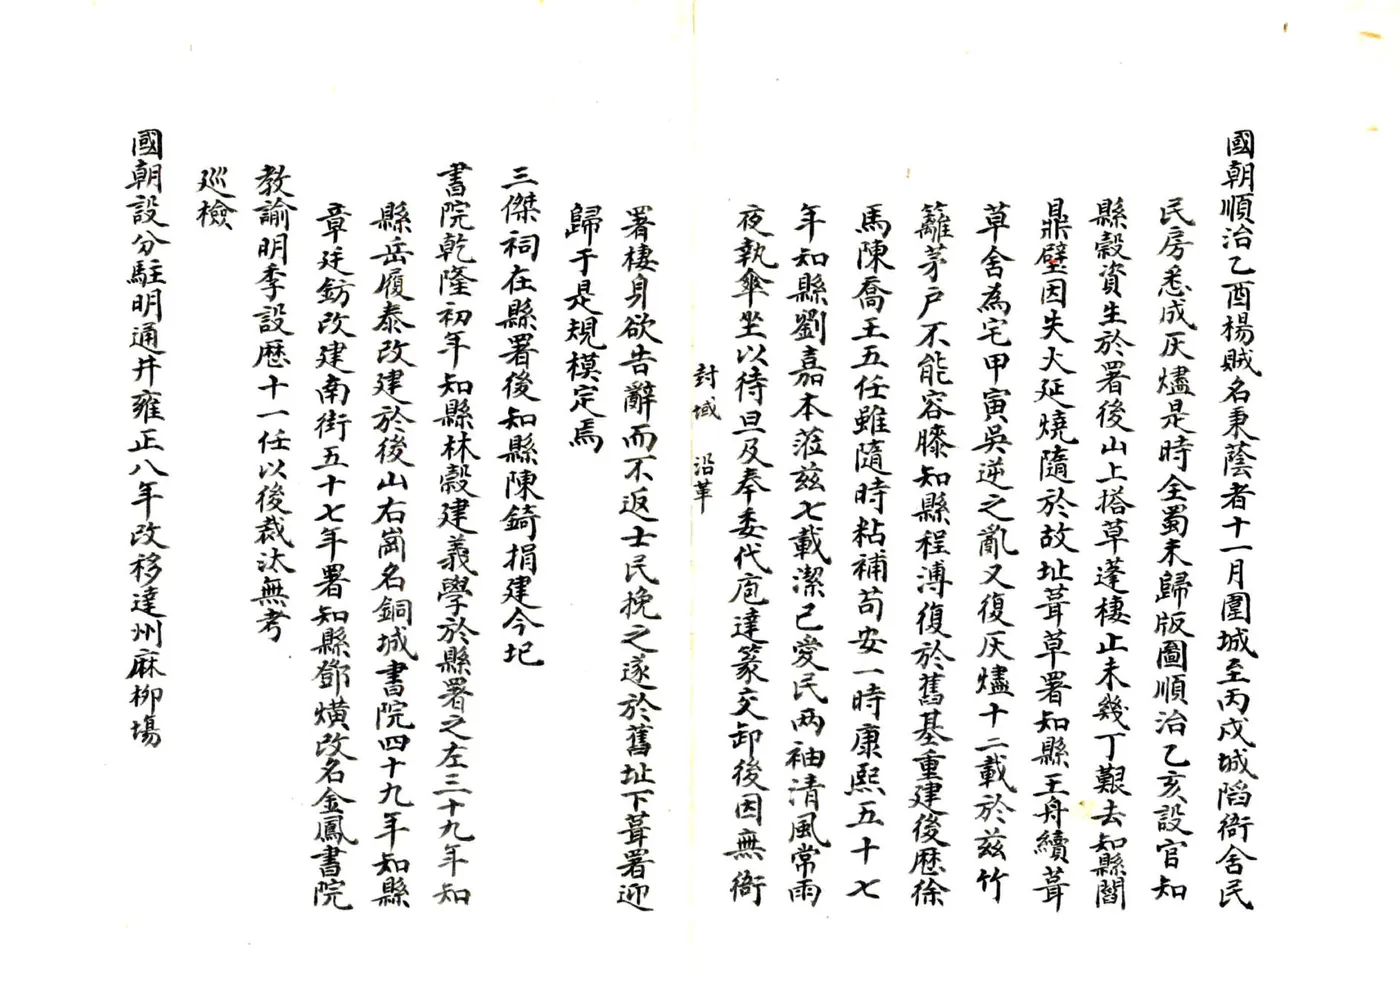 國朝順治乙酉楊賊名秉蔭者十一月圍城至丙戌城陷衙舍民
民房悉成灰燼是時全蜀未歸版圖順治乙亥設官知
縣穀資生於署後山上搭草蓬棲止未幾丁艱去知縣閻
鼎壁因失火延燒隨於故址葺草署知縣王舟續葺
草舍為宅甲寅吳逆之亂又復灰燼十二載於兹竹
籬茅戸不能容膝知縣程溥復於舊基重建後歷徐
馬陳喬王五任雖隨時粘補苟安一時康熙五十七
年知縣劉嘉本蒞兹七載潔己愛民两袖清風常雨
夜執傘坐以待旦及奉委代庖達篆交卸後因無衙
封域 沿革
署棲身欲告辭而不返士民挽之遂於舊址下葺署迎
歸于是規模定焉
三傑祠在縣署後知縣陳錡捐建今圮
書院乾隆初年知縣林穀建義學於縣署之左三十九年知
縣岳履泰改建於後山右崗名銅城書院四十九年知縣
章廷鈁改建南街五十七年署知縣鄧熿改名金鳳書院
教諭明季設歷十一任以後裁汰無考
廵檢
國朝設分駐明通井雍正八年改移達州麻柳塲